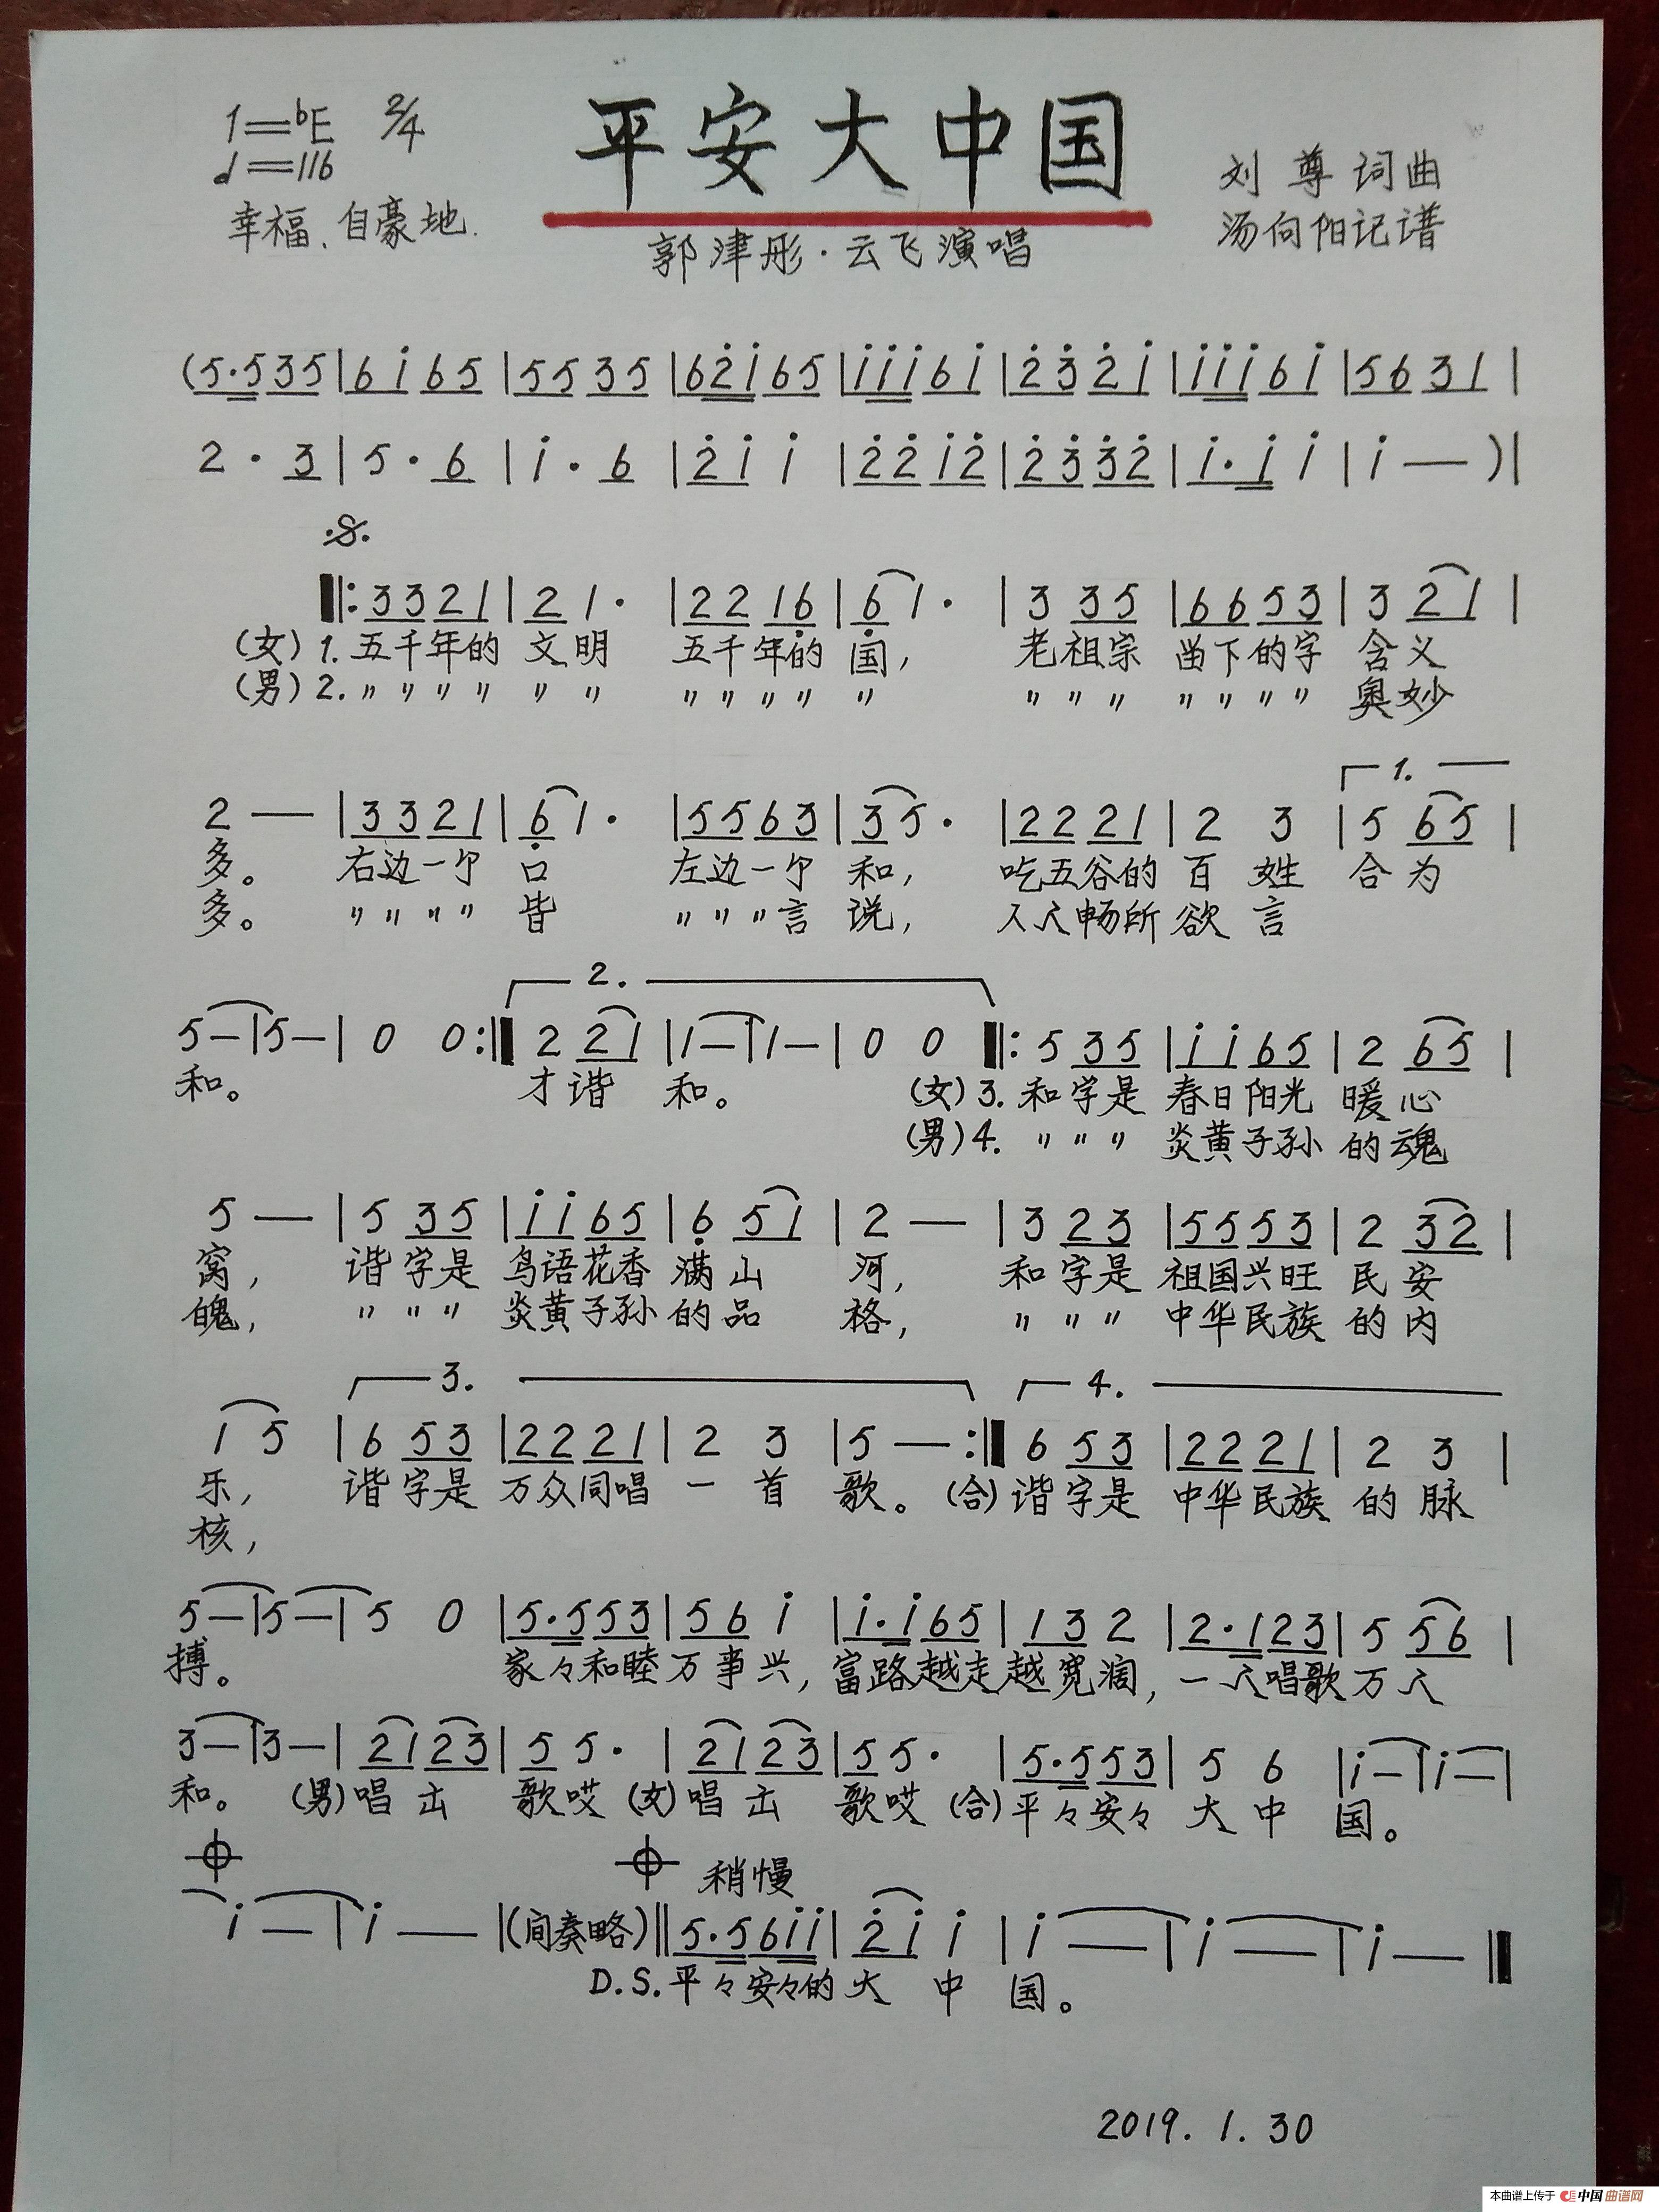 1=♭E 2/4
平安大中国
♩=116
幸福、自豪地.
刘尊词曲
汤向阳记谱
郭津彤·云飞演唱
(5·535|6i65|5535|62̇i65|iii6i|2̇3̇2̇i|iii6i|5631|
2·3|5·6|i·6|2̇i i|2̇2̇i2̇|2̇3̇3̇2̇|i·i i|i—)|
𝄋
‖:3321|21·|2216̣|6̣1·|3 35|6653|3 21|
(女)1.五千年的 文明 五千年的 国, 老祖宗 留下的字 含义
(男)2.〃〃〃〃 〃〃 〃〃〃〃 〃 〃〃〃 〃〃〃〃 奥妙
1.
2—|3321|6̣1·|5563|35·|2221|2 3|5 65|
多。 右边一个 口 左边一个 和, 吃五谷的 百姓 合为
多。 〃〃〃〃 皆 〃〃〃言 说, 人人畅所 欲言
2.
5—|5—|0 0:‖2 21|1—|1—|0 0‖:5 35|ii65|2 65|
和。 才谐 和。 (女)3.和字是 春日阳光 暖心
(男)4.〃〃〃 炎黄子孙 的魂
5—|5 35|ii65|6̣ 51|2—|3 23|5553|2 32|
窝, 谐字是 鸟语花香 满山 河, 和字是 祖国兴旺 民安
魄, 〃〃〃 炎黄子孙 的品 格, 〃〃〃 中华民族 的内
3. 4.
1 5|6 53|2221|2 3|5—:‖6 53|2221|2 3|
乐, 谐字是 万众同唱 一首 歌。(合)谐字是 中华民族 的脉
核,
5—|5—|5 0|5·553|56 i|i·i65|13 2|2·123|5 56|
搏。 家々和睦 万事兴, 富路越走 越宽阔, 一人唱歌 万人
3—|3—|2123|55·|2123|55·|5·553|5 6|i—|i—|
和。 (男)唱出 歌哎 (女)唱出 歌哎 (合)平々安々 大中 国。
𝄌 𝄌 稍慢
i—|i—|(间奏略)‖5·56ii|2̇i i|i—|i—|i—‖
D.S.平々安々的 大中 国。
2019.1.30
本曲谱上传于 中国曲谱网